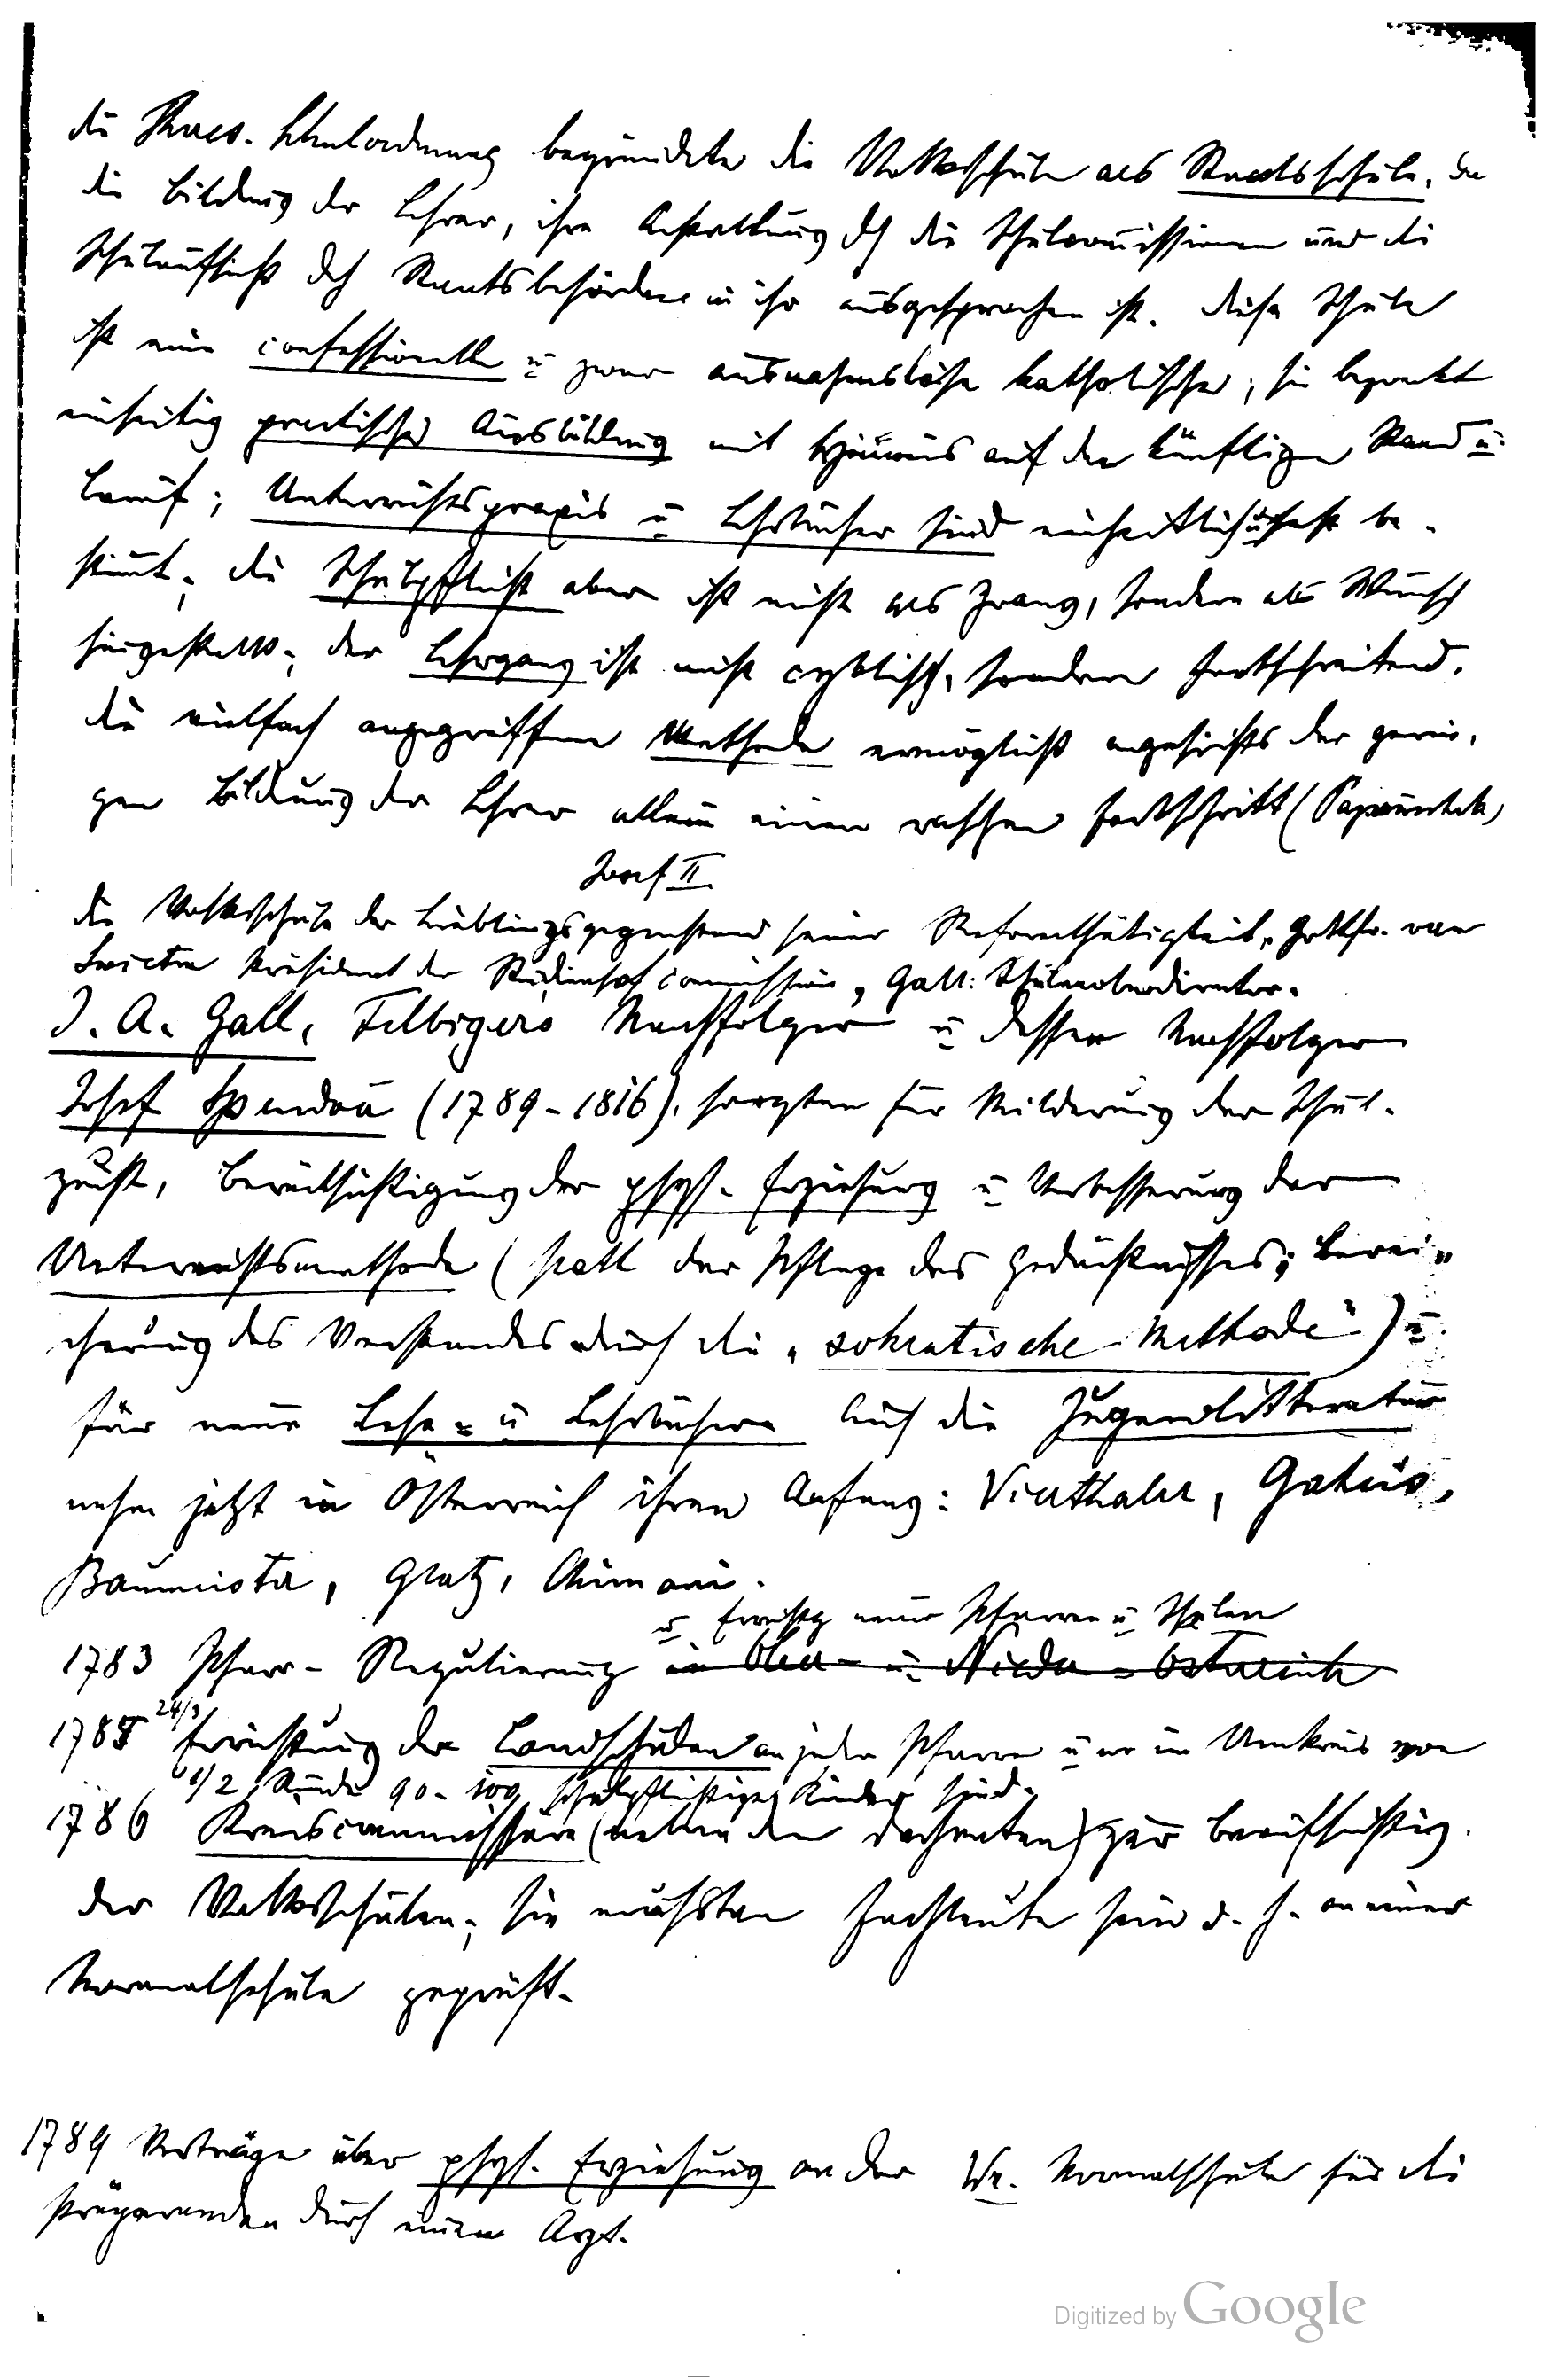 die Thres. Schulordnung begründete die Volksschule als Staatsschule, da
die Bildung der Lehrer, ihre Anstellung dch die Schulcommissionen und die
Schulaufsicht dch Staatsbehörden in ihr ausgesprochen ist. Diese Schule
ist eine confessionelle u zwar ausnahmslose katholische; sie bezweckt
einseitig practische Ausbildung mit Hinweis auf den künftigen Stand u
Beruf; Unterrichtspraxis u Lehrbücher sind einheitlich u fest be-
stimmt; die Schulpflicht aber ist nicht als Zwang, sondern als Wunsch
hingestellt; der Lehrgang ist nicht cyklisch, sondern fortschreitend.
Die vielfach angegriffene Methode ermöglicht angesichts der gerin-
gen Bildung der Lehrer allein einen raschen Fortschritt
Josef II
Die Volksschule der Lieblingsgegenstand seiner Reformthätigkeit, Gottfr. van
Swieten Präsident der Studienhofcommission, Gall: Schulenoberdirector.
J. A. Gall, Felbigers Nachfolger u dessen Nachfolger
Josef Spendou (1789-1816), sorgten für Milderung der Schul-
zucht, Berücksichtigung der phys. Erziehung u Verbesserung der
Unterrichtsmethode (statt der Pflege des Gedächtnisses; Berei-
cherung des Verstandes durch die „sokratische Methode") u
für neue Lese- u Lehrbücher. Auch die Jugendlitteratur
nehme jetzt in Österreich ihren Anfang: Vierthaler, Gaheis,
Baumeister, Glatz, Chimani.
u Errichtg neuer Pfarren u Schulen
1783 Pfarr-Regulierung in Ober- u Nieder-Österreich
1785 24/3 Errichtung der Landschulen an jeder Pfarre u wo im Umkreis von
1/2 Stunde 90-100 schulpflichtige Kinder sind.
1786 Kreiscommissäre (neben den Dechanten) zur Beaufsichtig.
der Volksschulen; sie mußten Fachleute sein d. h. an einer
Normalschule geprüft.
1789 Vorträge über phys. Erziehung an der Wr. Normalschule für die
Präparanden durch einen Arzt.
Digitized by Google